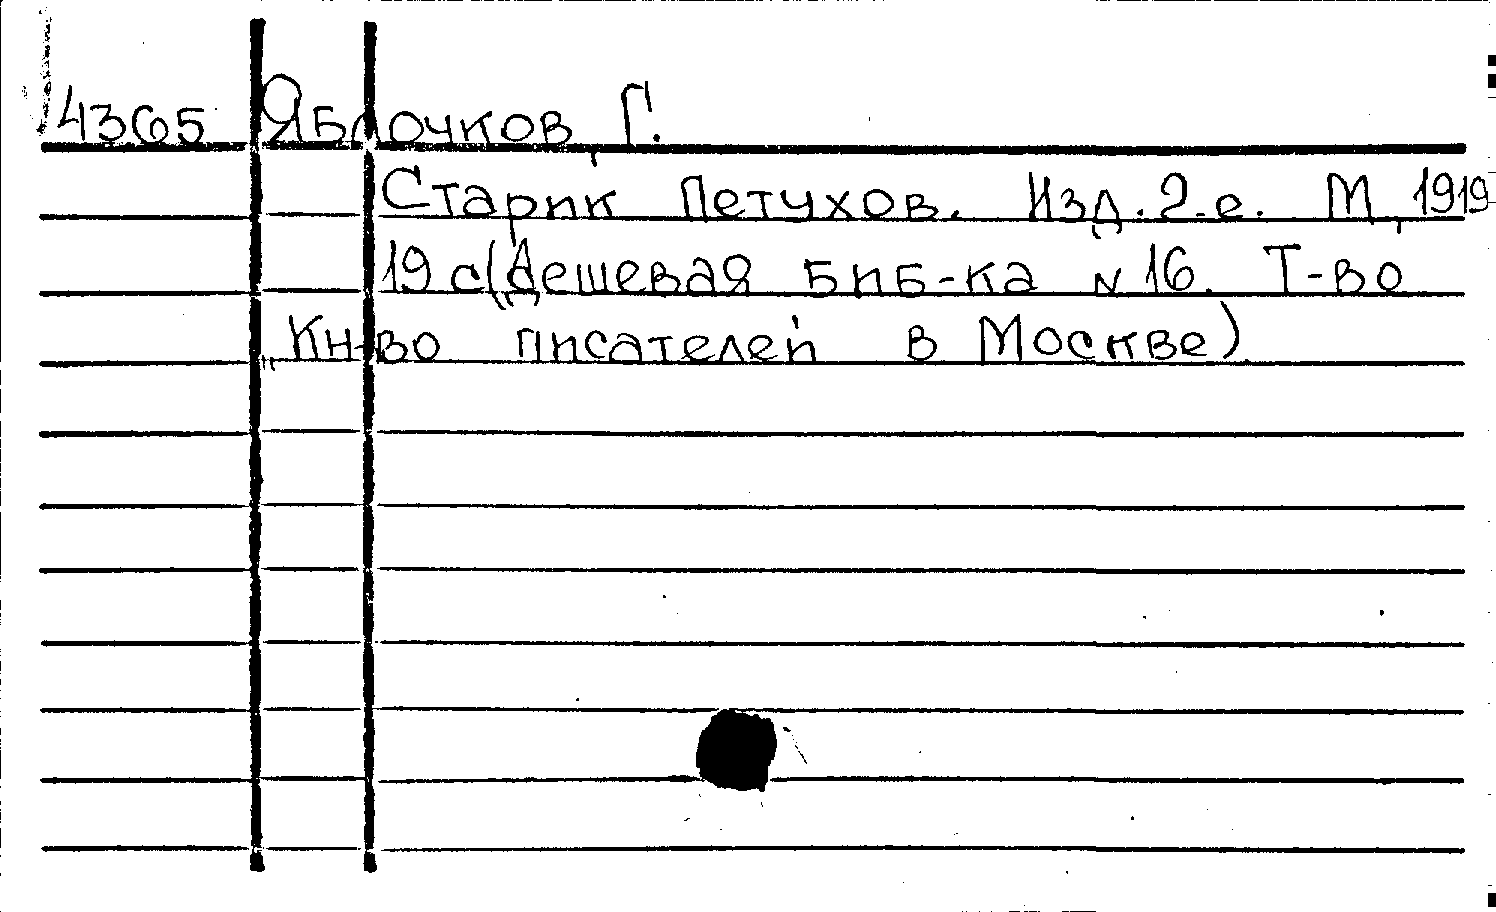 4365 Яблочков, Г.
Старик Петухов. Изд. 2-е. М, 1919
19 с (Дешевая биб-ка N 16. Т-во
„Кн-во писателей в Москве)